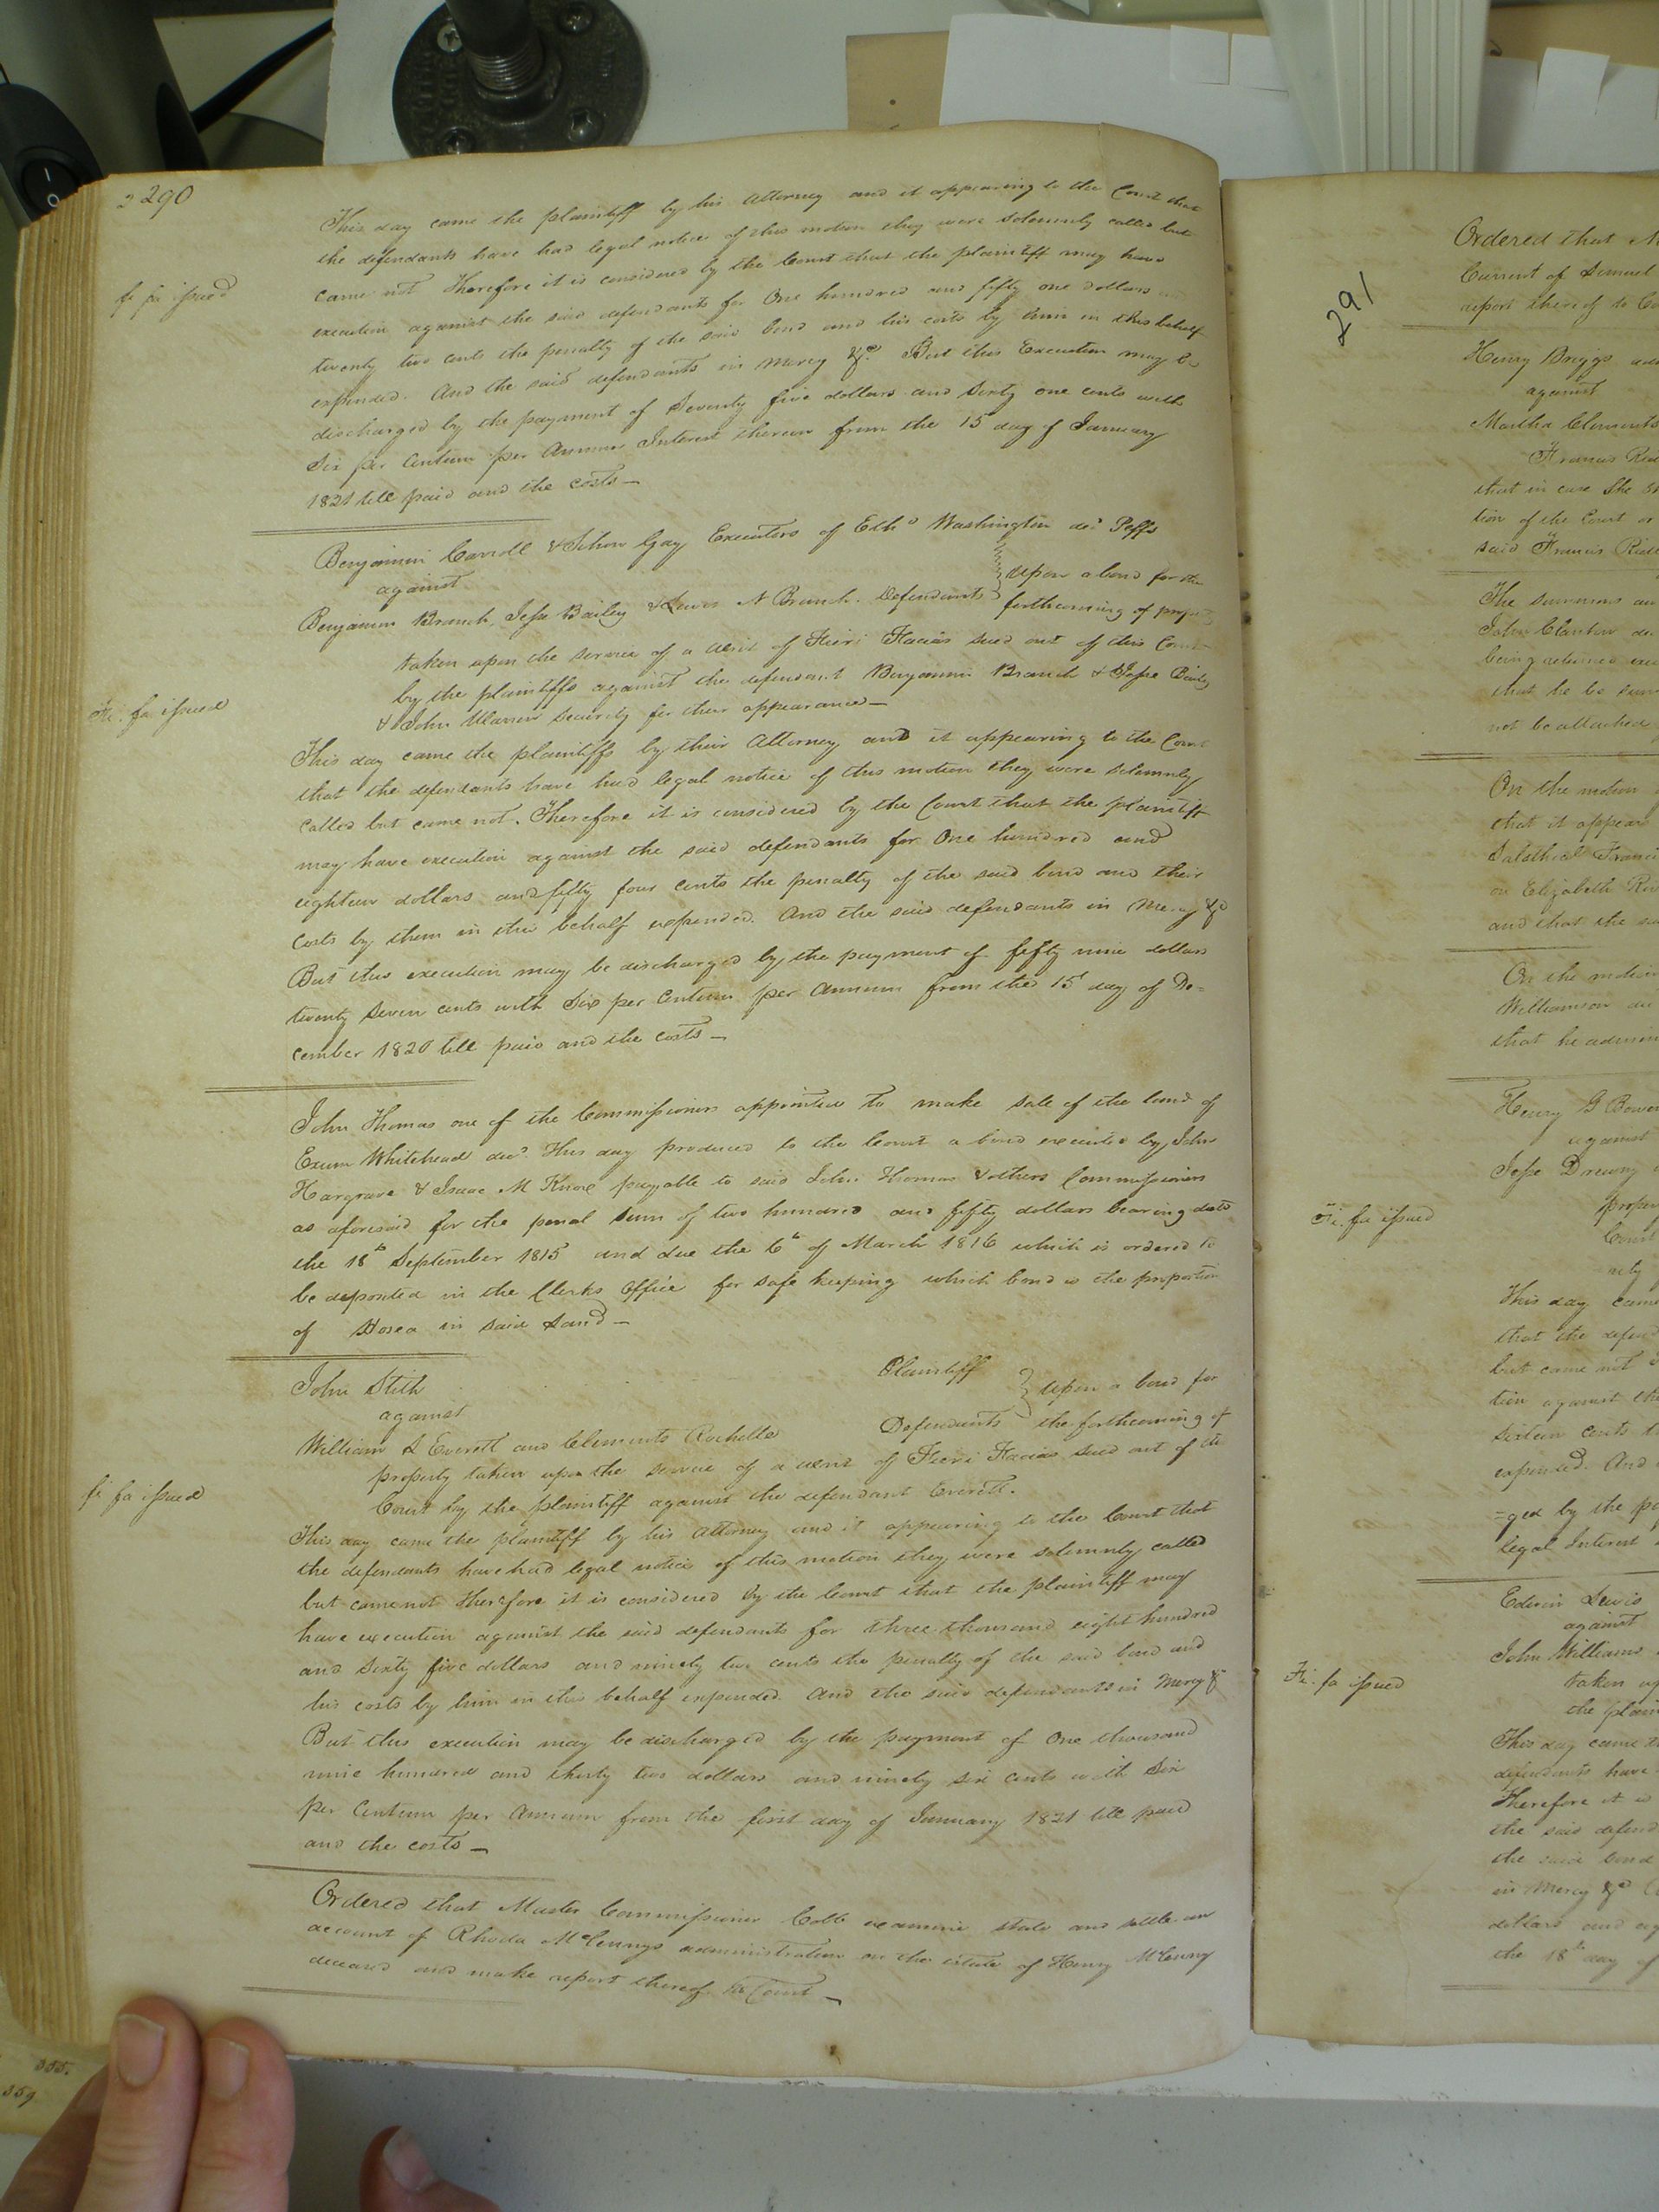 290
This day came the plaintiff by his Attorney and it appearing to the Court that
the defendants have had legal notice of this motion they were solemnly called but
came not Therefore it is considered by the Court that the plaintiff may have
fi fa issued
execution against the said defendants for One hundred and fifty one dollars
twenty two cents the penalty of the said bond and his costs by him in this behalf
expended. And the said defendants in mercy &c. But this Execution may be
discharged by the payment of Seventy five dollars and Sixty one cents with
Six per Centum per Annum Interest thereon from the 15 day of January
1821 till paid and the costs —
Benjamin Carroll & John Gay Executors of Eth.d Washington dec. Plffs
against
upon a bond for the
Benjamin Branch, Jesse Bailey & Lewis N Branch. Defendants
forthcoming of property
taken upon the service of a Writ of Fieri Facias sued out of this Court
by the plaintiffs against the defendant Benjamin Branch & Jesse Bailey
Fi. fa issued
& John Warren security for their appearance —
This day came the plaintiffs by their Attorney and it appearing to the Court
that the defendants have had legal notice of this motion they were solemnly
called but came not. Therefore it is considered by the Court that the plaintiff
may have execution against the said defendants for One hundred and
eighteen dollars and fifty four cents the penalty of the said bond and their
Costs by them in this behalf expended. And the said defendants in Mercy &c
But this execution may be discharged by the payment of fifty nine dollars
twenty seven cents with Six per Centum per Annum from the 15 day of De=
cember 1820 till paid and the costs —
John Thomas one of the Commissioners appointed to make sale of the land of
Exum Whitehead dec.d This day produced to the Court a bond executed by John
Hargrave & Isaac M Knox payable to said John Thomas & others Commissioners
as aforesaid for the penal sum of two hundred and fifty dollars bearing date
the 18th September 1815 and due the 6th of March 1816 which is ordered to
be deposited in the Clerks Office for safe keeping which bond is the proportion
of Hosea in said Land —
John Stith
Plaintiff
against
upon a bond for
William L Everett and Clements Rochelle
Defendants
the forthcoming of
property taken upon the service of a writ of Fieri Facias sued out of the
fi fa issued
Court by the plaintiff against the defendant Everett.
This day came the plaintiff by his Attorney and it appearing to the Court that
the defendants have had legal notice of this motion they were solemnly called
but came not Therefore it is considered by the Court that the plaintiff may
have execution against the said defendants for three thousand eight hundred
and Sixty five dollars and ninety two cents the penalty of the said bond and
his costs by him in this behalf expended. And the said defendants in Mercy &c
But this execution may be discharged by the payment of One thousand
nine hundred and thirty two dollars and ninety six cents with Six
per Centum per Annum from the first day of January 1821 till paid
and the costs —
Ordered that Master Commissioner Cobb examine state and settle an
account of Rhoda McLenny's administration on the estate of Henry McLenny
deceased and make report thereof to Court —
355.
359
291
Ordered that
Current of Samuel
report thereof to
Henry Briggs
against
Martha Clements
Francis
that in case She
tion of the Court or
said Francis
The summons
John Clanton
being returned
that he be
not be attached
On the motion
that it appears
Francis
on Elizabeth
and that the
On the motion
Williamson
that he
Henry G Bowers
against
Jesse Drewry
Fi. fa issued
Court
This day came
that the
but came not
tion against the
sixteen cents
expended. And
=ged by the
legal Interest
Edwin Lewis
against
John Williams
Fi. fa issued
taken
the
This day came
defendants have
Therefore it is
the said
the said bond
in Mercy &c
dollars and
the 18th day of